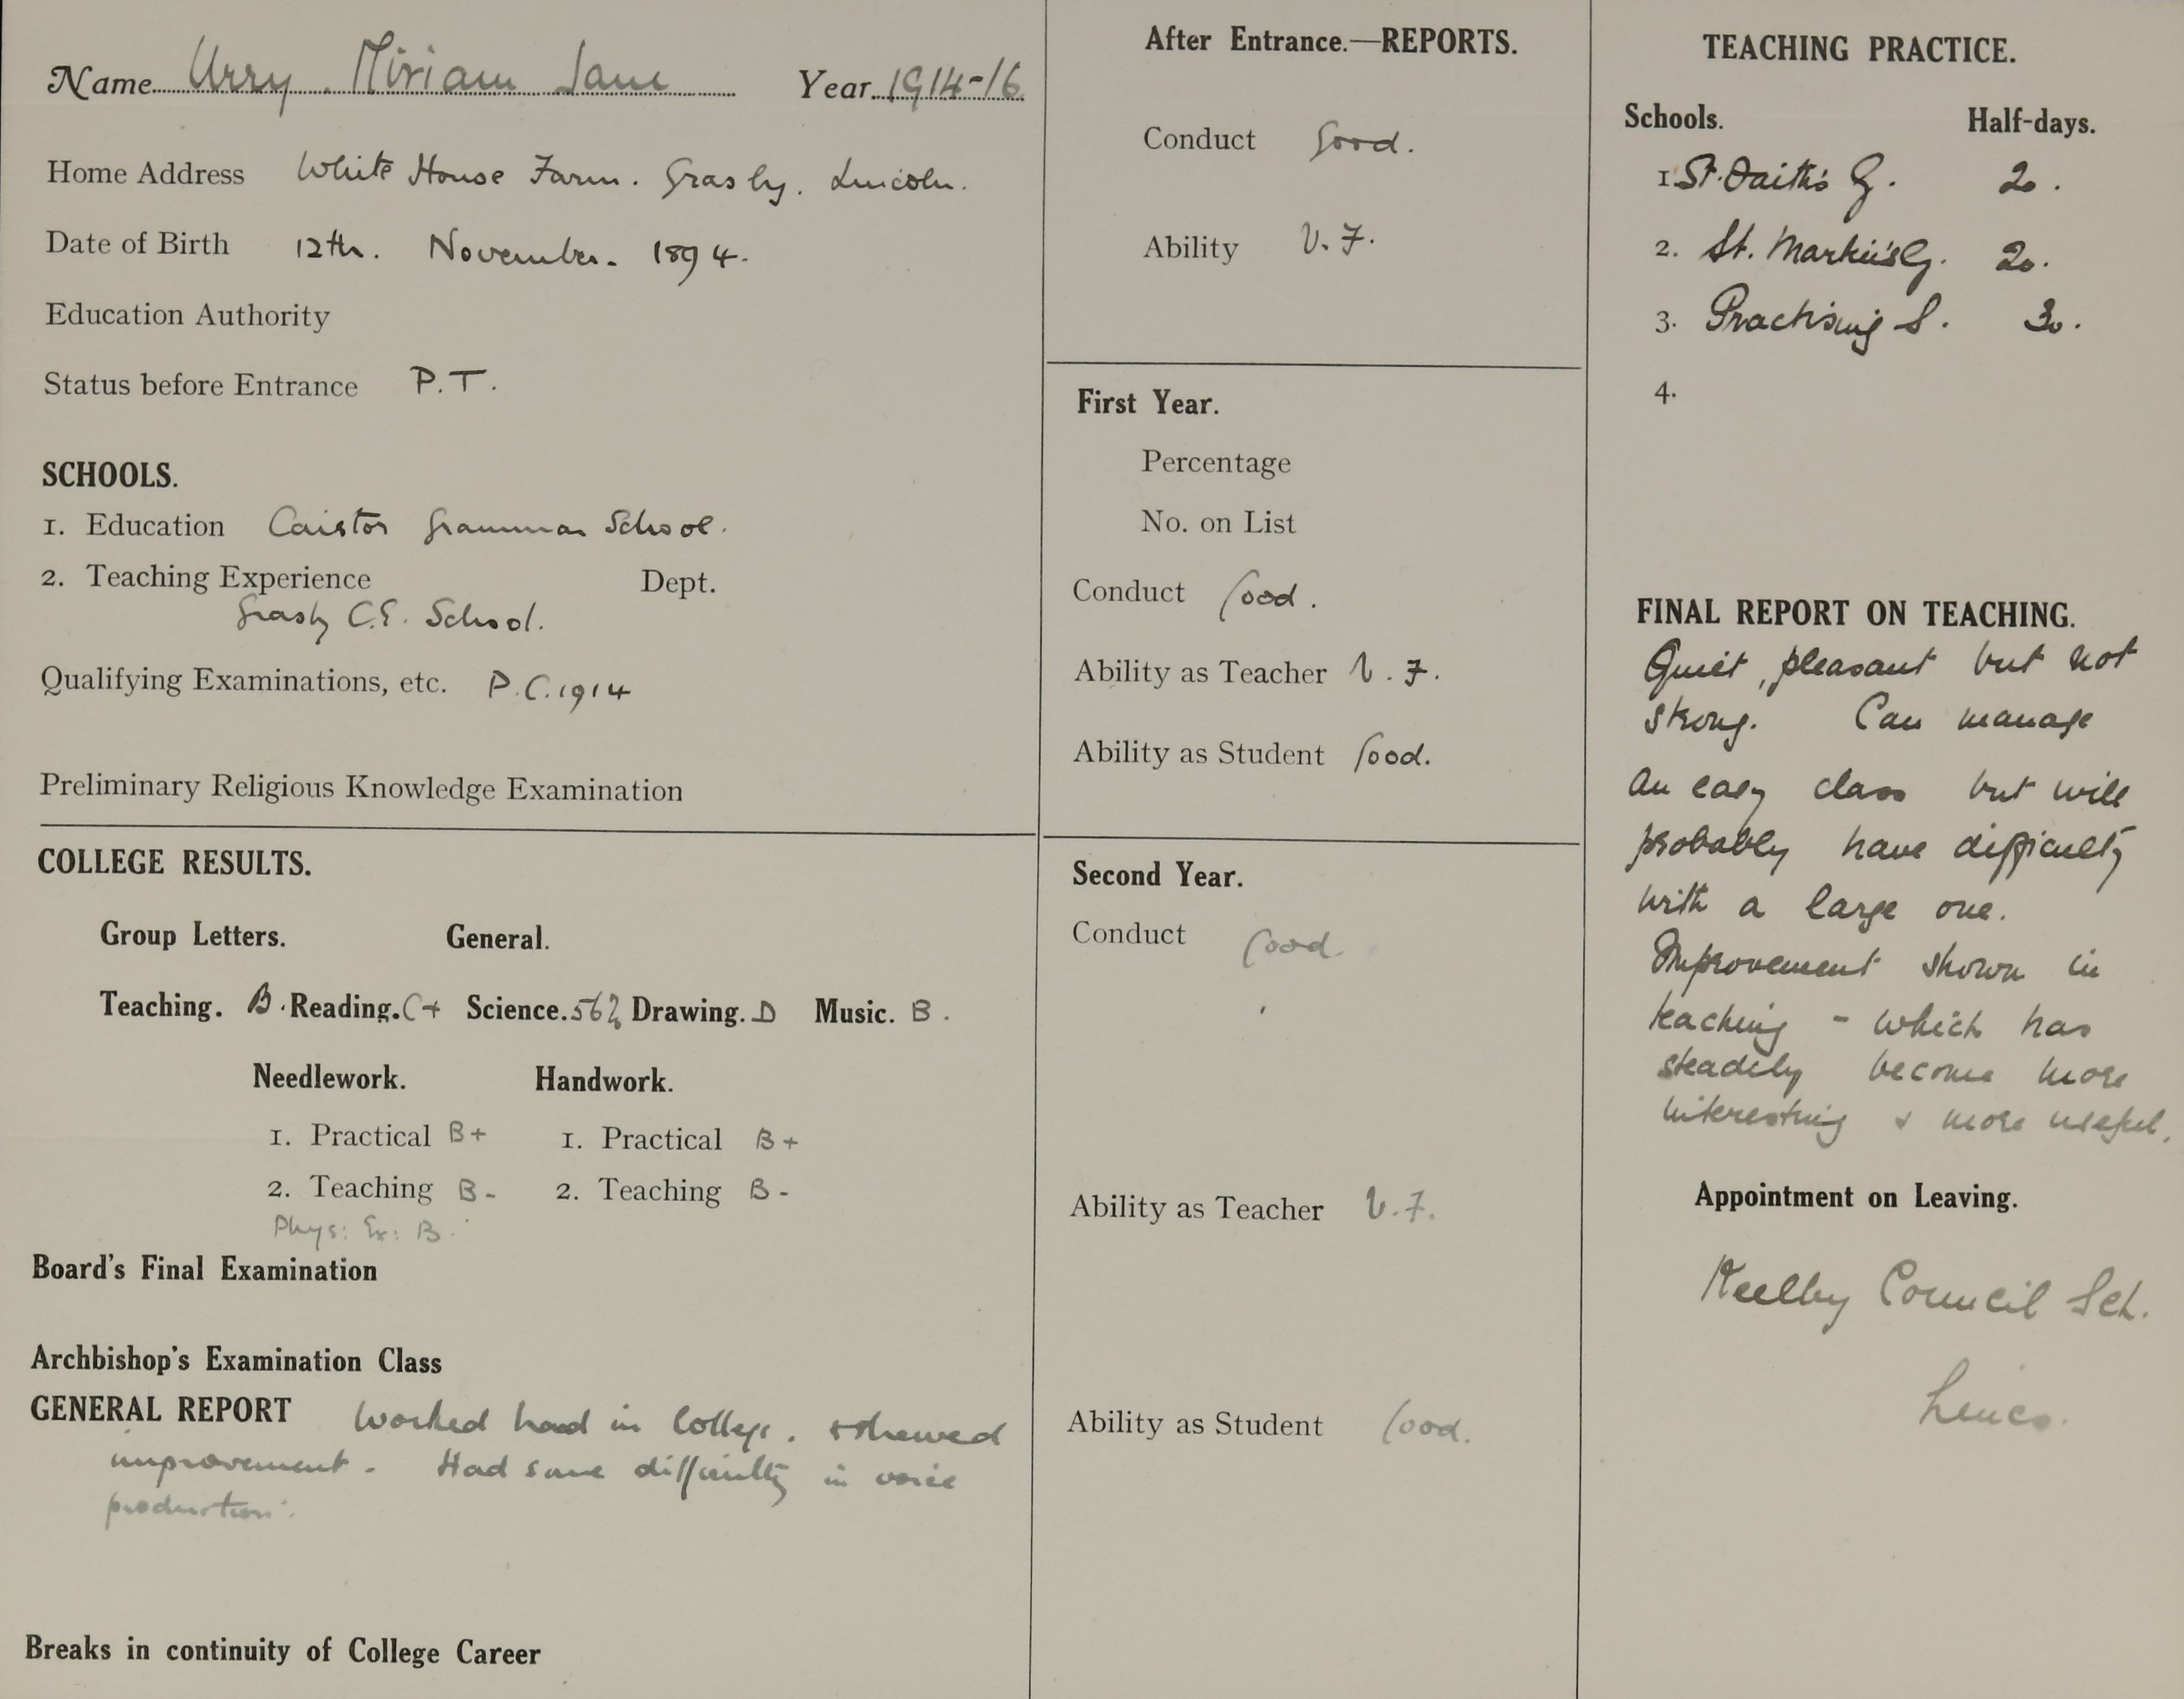 Name Urry. Miriam Jane Year 1914-16
Home Address White House Farm. Grasby. Lincoln.
Date of Birth 12th. November. 1894.
Education Authority
Status before Entrance P.T.
SCHOOLS.
1. Education Caistor Grammar School.
2. Teaching Experience Dept.
Grasby C.E. School.
Qualifying Examinations, etc. P.C. 1914
Preliminary Religious Knowledge Examination
COLLEGE RESULTS.
Group Letters. General.
Teaching. B. Reading. C+ Science. 56% Drawing. D Music. B.
Needlework. Handwork.
1. Practical B+ 1. Practical B+
2. Teaching B- 2. Teaching B-
Phys: Ex: B.
Board's Final Examination
Archbishop's Examination Class
GENERAL REPORT Worked hard in College. & shewed
improvement. Had some difficulty in voice
production.
Breaks in continuity of College Career
After Entrance.—REPORTS.
Conduct Good.
Ability V.F.
First Year.
Percentage
No. on List
Conduct Good.
Ability as Teacher V.F.
Ability as Student Good.
Second Year.
Conduct Good.
Ability as Teacher V.F.
Ability as Student Good.
TEACHING PRACTICE.
Schools. Half-days.
1. St. Faith's G. 20.
2. St. Martin's G. 20.
3. Practising S. 30.
4.
FINAL REPORT ON TEACHING.
Quiet, pleasant but not
strong. Can manage
an easy class but will
probably have difficulty
with a large one.
Improvement shown in
teaching - which has
steadily become more
interesting & more useful.
Appointment on Leaving.
Keelby Council Sch.
Lincs.